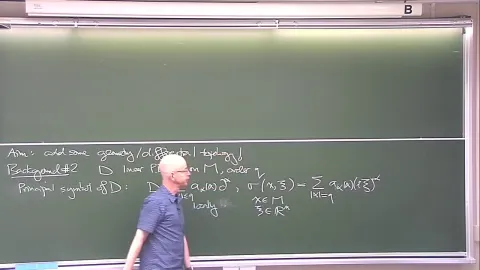 B
Aim: add some geometry/differential topology!
Background #2 D linear P on M, order q
Principal symbol of D: D a_α(x)∂^α, σ(x,ξ) = Σ_{|α|=q} a_α(x)(iξ)^α
locally x∈M
ξ∈ℝⁿ